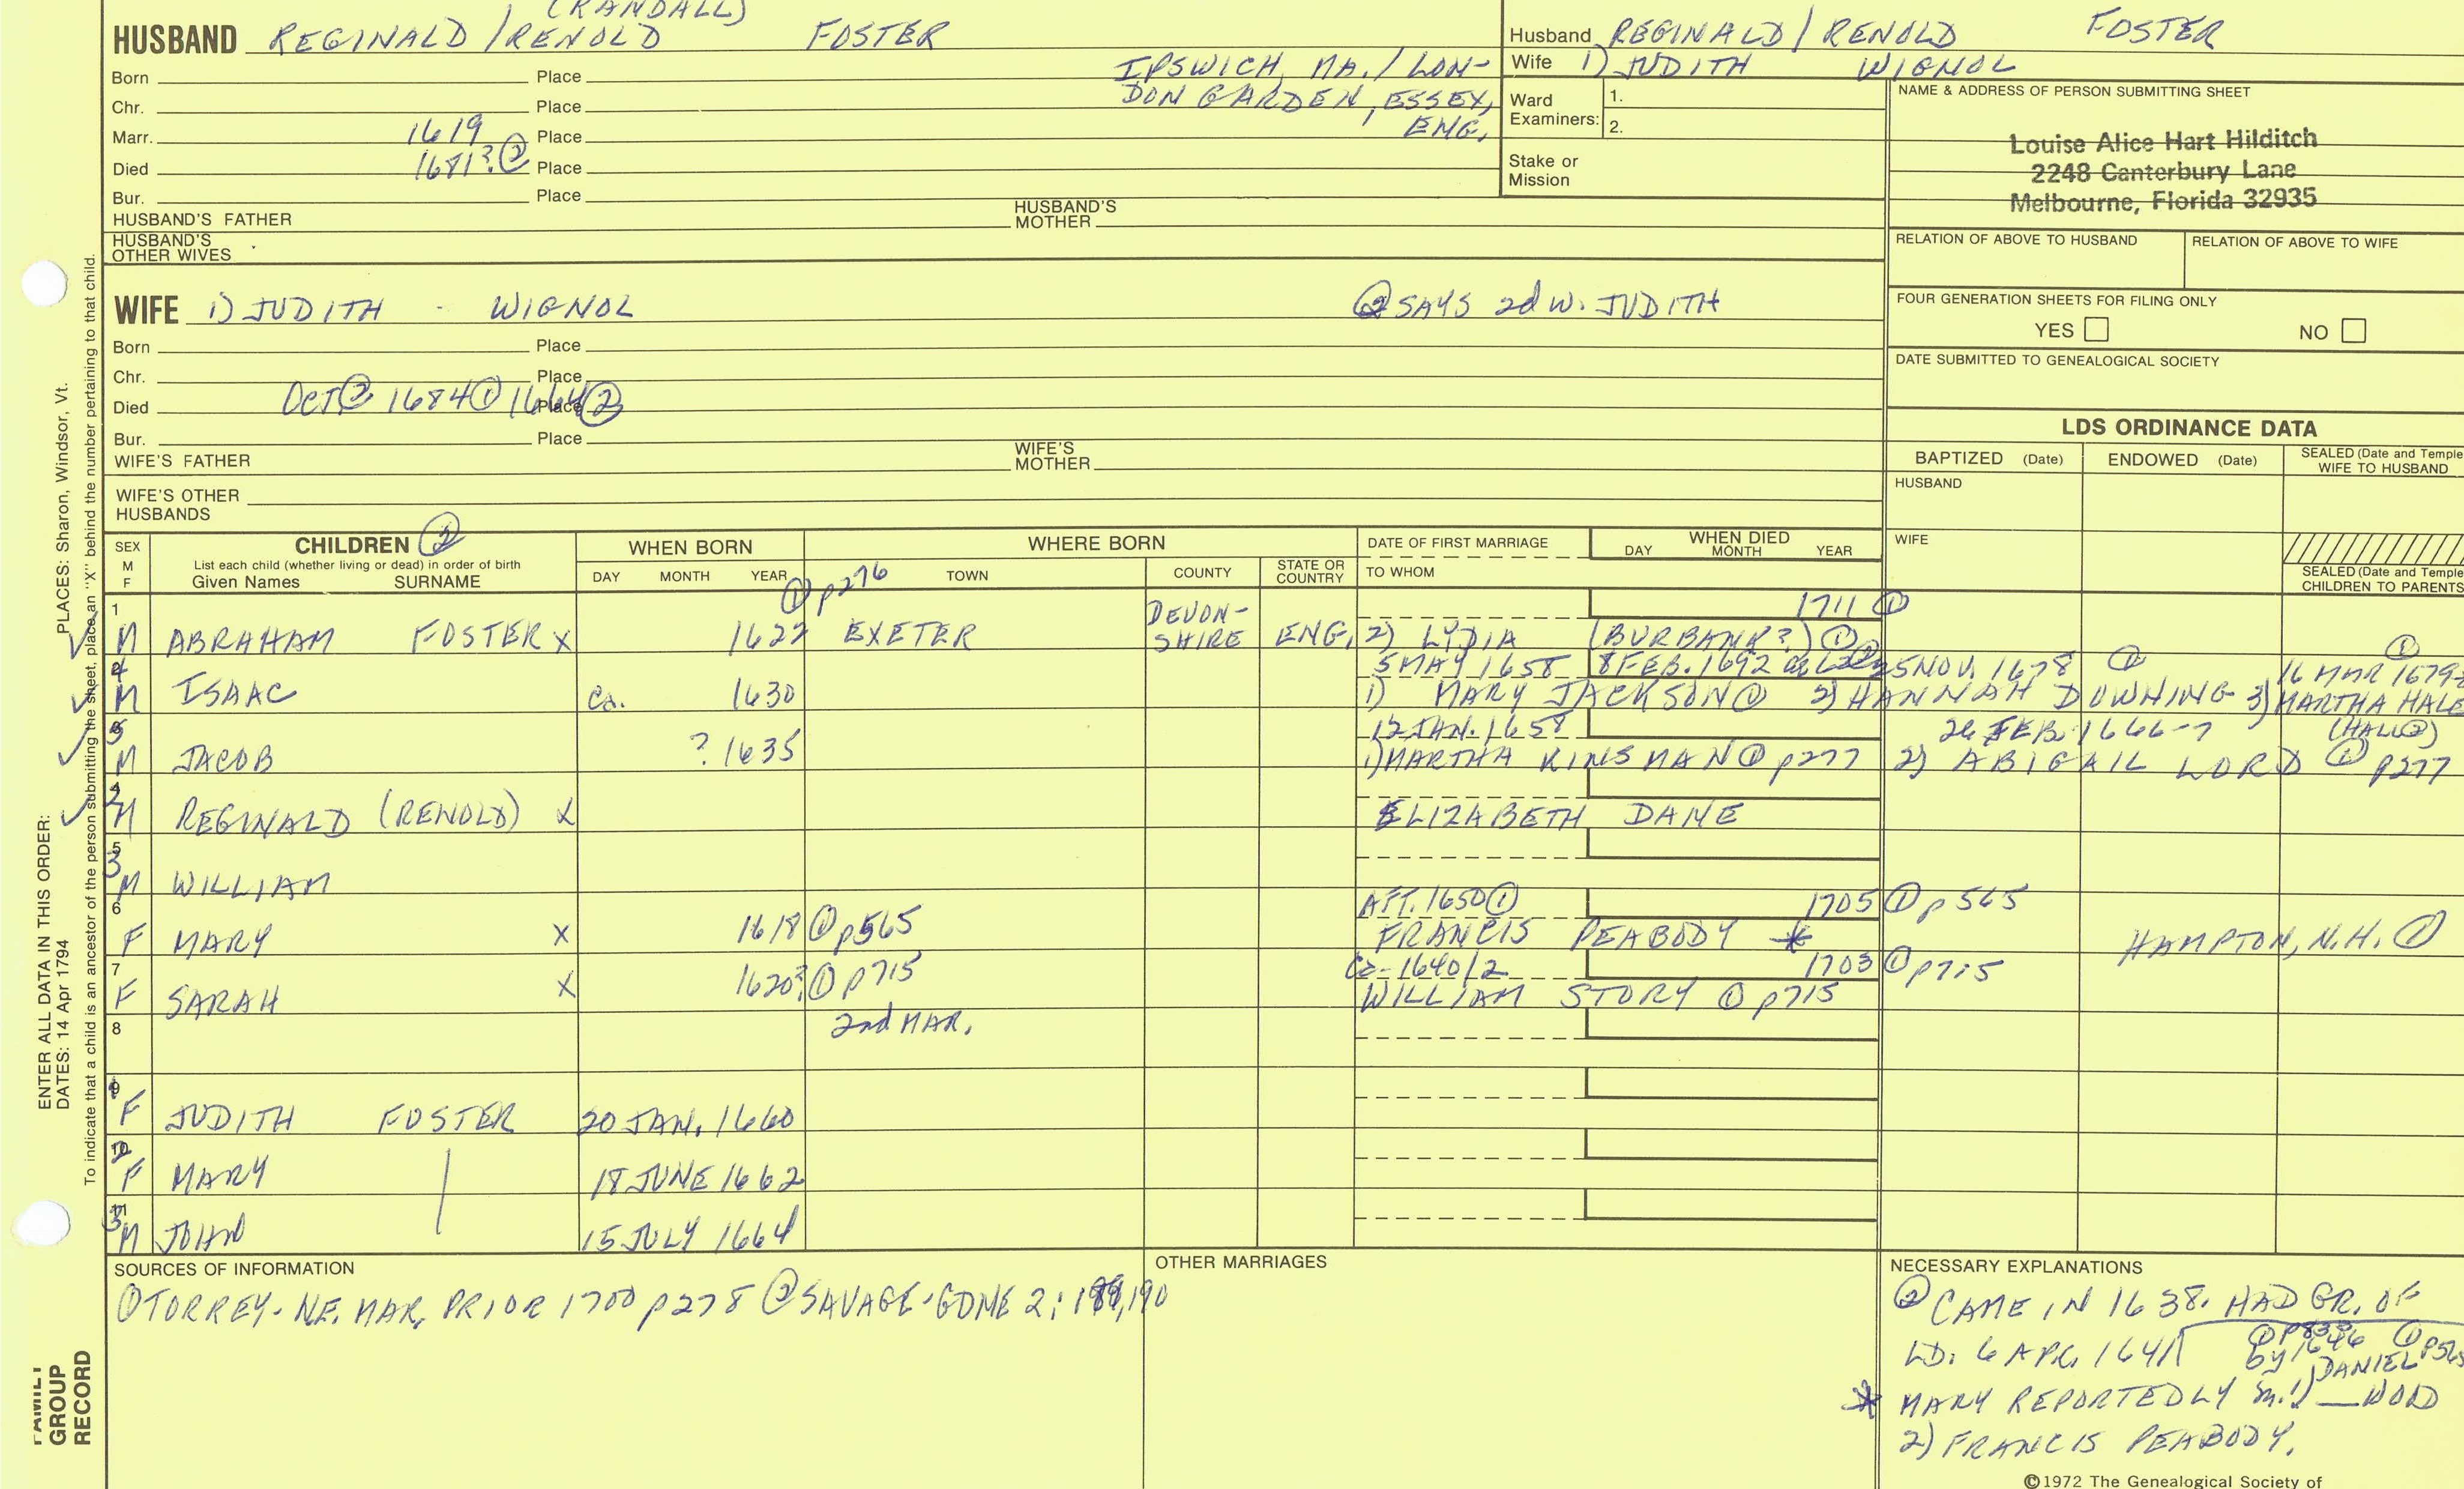 (RANDALL)
HUSBAND REGINALD / RENOLD FOSTER
Born Place IPSWICH, MA. / LON-
Chr. Place DON GARDEN, ESSEX,
Marr. 1619 Place ENG.
Died 1681? ② Place
Bur. Place
HUSBAND'S FATHER HUSBAND'S MOTHER
HUSBAND'S OTHER WIVES
Husband REGINALD / RENOLD FOSTER
Wife 1) JUDITH WIGNOL
Ward Examiners: 1.
2.
Stake or Mission
NAME & ADDRESS OF PERSON SUBMITTING SHEET
Louise Alice Hart Hilditch
2248 Canterbury Lane
Melbourne, Florida 32935
RELATION OF ABOVE TO HUSBAND RELATION OF ABOVE TO WIFE
WIFE 1) JUDITH - WIGNOL ② SAYS 2d W. JUDITH
Born Place
Chr. Place
Died OCT ② 1684 ① 1664 ② Place
Bur. Place
WIFE'S FATHER WIFE'S MOTHER
WIFE'S OTHER HUSBANDS
FOUR GENERATION SHEETS FOR FILING ONLY
YES NO
DATE SUBMITTED TO GENEALOGICAL SOCIETY
LDS ORDINANCE DATA
BAPTIZED (Date) ENDOWED (Date) SEALED (Date and Temple
WIFE TO HUSBAND
HUSBAND
WIFE
SEALED (Date and Temple
CHILDREN TO PARENTS
SEX M F
CHILDREN ②
List each child (whether living or dead) in order of birth
Given Names SURNAME
WHEN BORN
DAY MONTH YEAR
WHERE BORN
TOWN COUNTY STATE OR COUNTRY
DATE OF FIRST MARRIAGE
TO WHOM
WHEN DIED
DAY MONTH YEAR
① p276
1 DEVON- 1711 ①
M ABRAHAM FOSTER X 1622 EXETER SHIRE ENG. 2) LYDIA (BURBANK?) ①
5 MAY 1658 8 FEB. 1692 25 NOV. 1678 ① 16 MAR 1679-
M ISAAC Ca. 1630 1) MARY JACKSON ① 2) HANNAH DOWNING 3) MARTHA HALE
12 JAN. 1658 26 FEB. 1666-7 (HALL ②)
M JACOB ? 1635 1) MARTHA KINSMAN ① p277 2) ABIGAIL LORD ① p277
M REGINALD (RENOLD) X ELIZABETH DANE
5
3
M WILLIAM
6 AFT. 1650 ① 1705 ① p565
F MARY X 1618 ① p565 FRANCIS PEABODY * HAMPTON, N.H. ①
7 Ca-1640/2 1703 ① p715
F SARAH X 1620? ① p715 WILLIAM STORY ① p715
8 2nd MAR.
9
F JUDITH FOSTER 20 JAN. 1660
10
F MARY | 18 JUNE 1662
11
M JOHN 15 JULY 1664
SOURCES OF INFORMATION
① TORREY-NE. MAR. PRIOR 1700 p278 ② SAVAGE-GDNE 2: 189,190
OTHER MARRIAGES
NECESSARY EXPLANATIONS
② CAME IN 1638. HAD GR. OF
LD. 6 APR. 1641
by 1646 DANIEL ① p565
* MARY REPORTEDLY m. 1) __WOOD
2) FRANCIS PEABODY.
©1972 The Genealogical Society of
ENTER ALL DATA IN THIS ORDER:
DATES: 14 Apr 1794 PLACES: Sharon, Windsor, Vt.
To indicate that a child is an ancestor of the person submitting the sheet, place an "X" behind the number pertaining to that child.
FAMILY
GROUP
RECORD